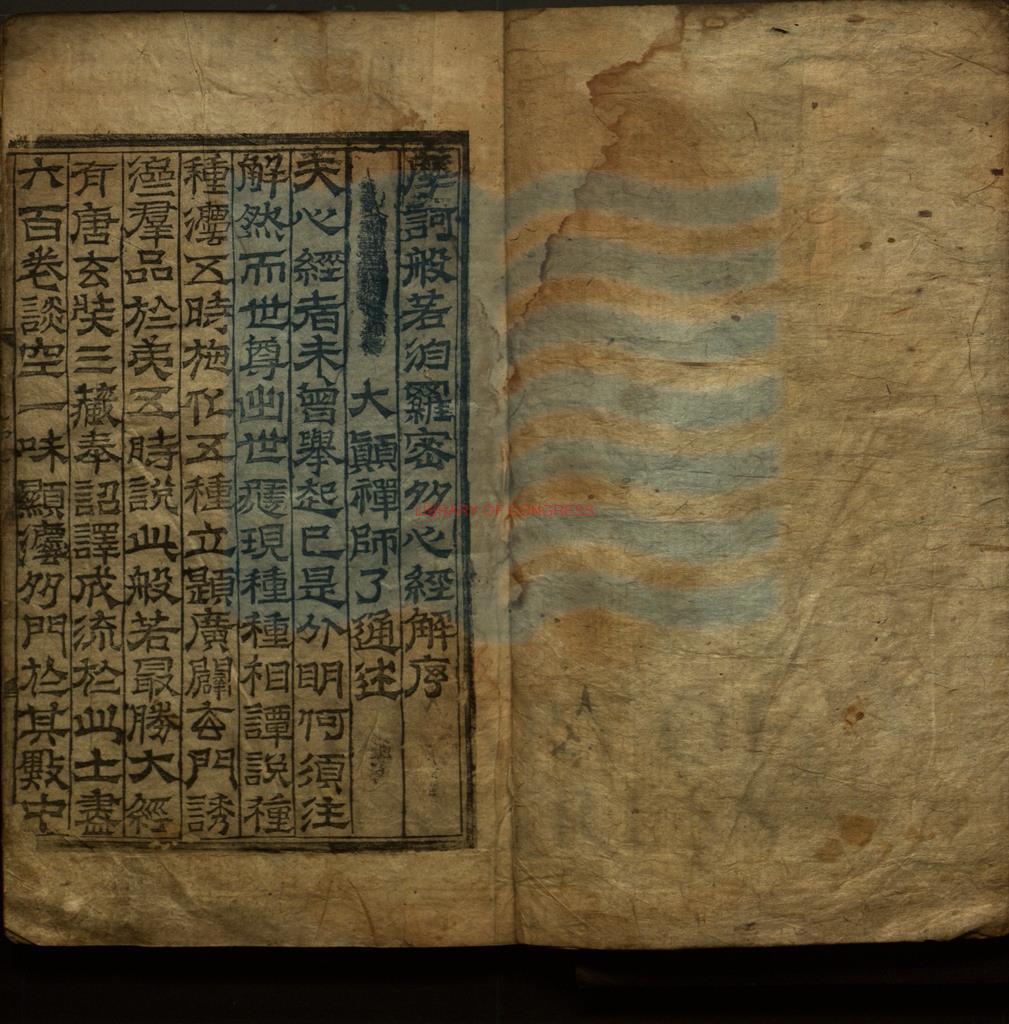 摩訶般若波羅密多心經解序
大顚禪師了通述
夫心經者未曾擧起已是分明何須注
解然而世尊出世應現種種相譚說種
種法五時施化五種立題廣闢玄門誘
羣品於第五時說此般若最勝大經
有唐玄奘三藏奉詔譯成流於此土盡
六百卷談空一味顯法多門於其數中
LIBRARY OF CONGRESS